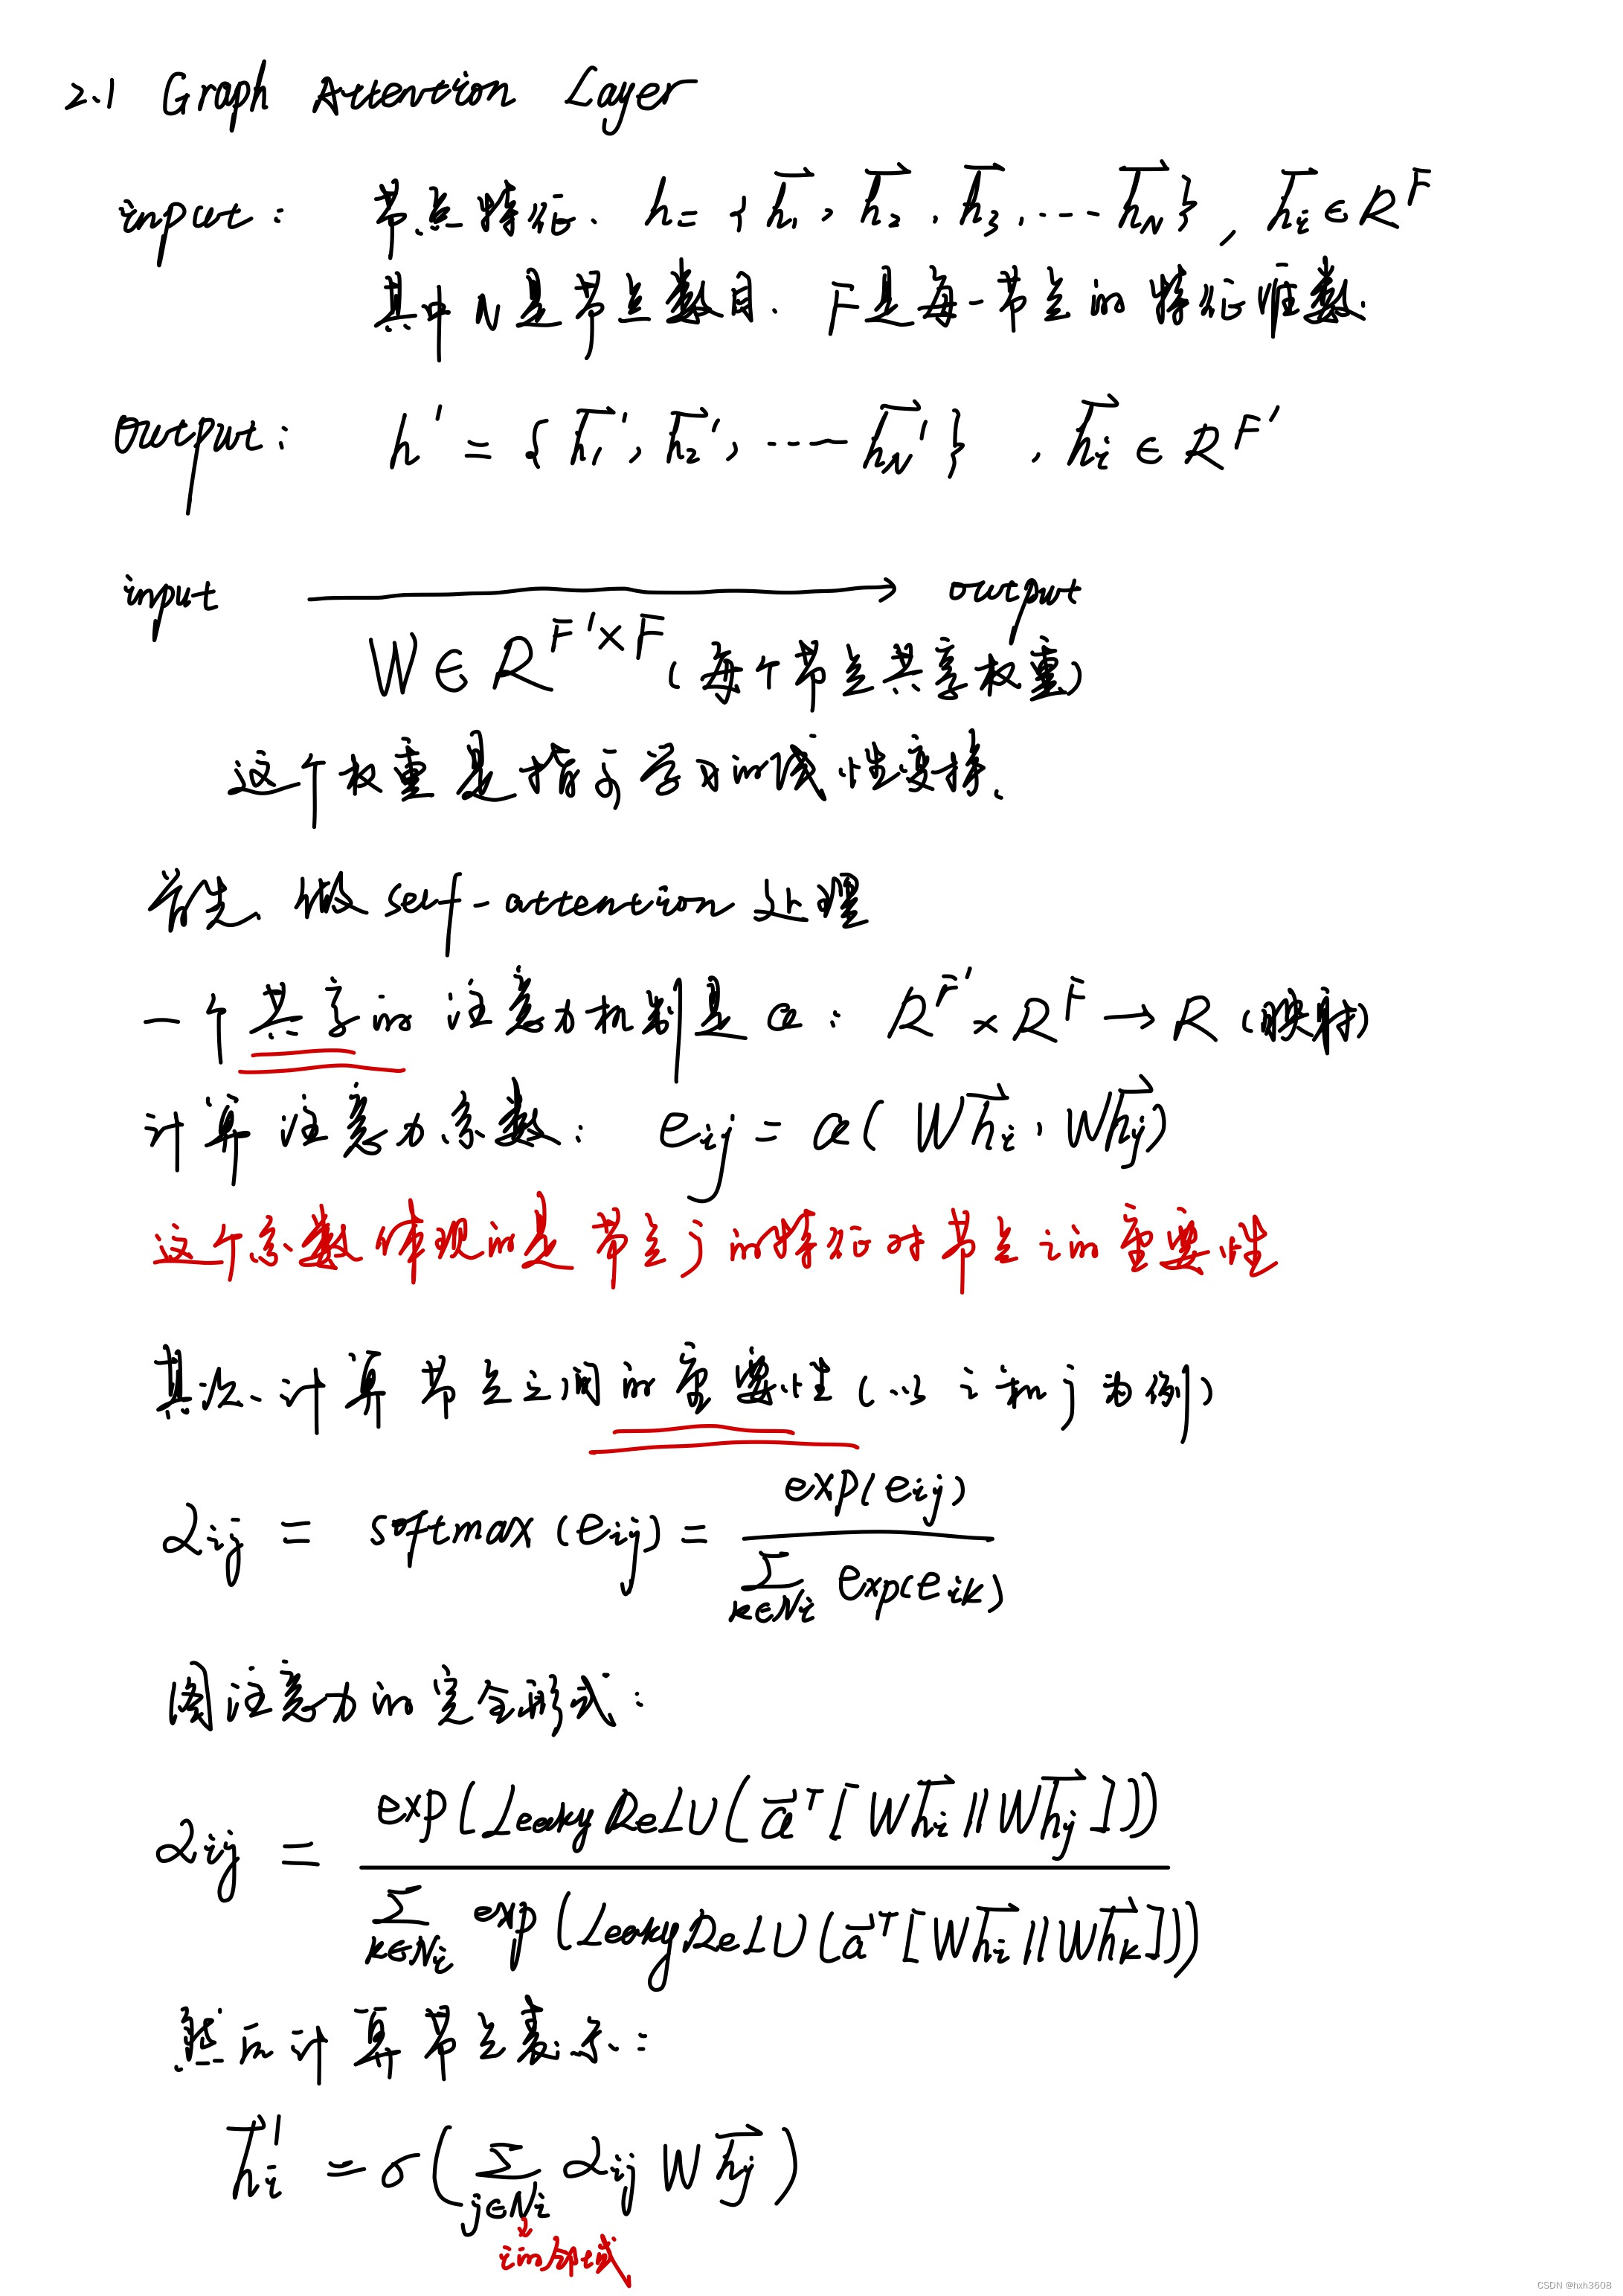 2.1 Graph Attention Layer
input: 节点特征. h = {h⃗₁, h⃗₂, h⃗₃, .... h⃗_N}, h⃗ᵢ ∈ R^F
其中 N 是节点数目. F是每一节点的特征维数.
output: h' = {h⃗₁', h⃗₂', .... h⃗_N'}, h⃗ᵢ ∈ R^F'
input → output
W ∈ R^(F'×F) (每个节点共享权重)
这个权重是指可学习的线性变换.
首先. 做 self-attention 处理
一个共享的注意力机制是 a: R^F' × R^F → R (映射)
计算注意力系数: e_ij = a(Wh⃗ᵢ, Wh⃗ⱼ)
这个系数体现的是节点 j 的特征对节点 i 的重要性
其次. 计算节点之间的重要性 (以 i 和 j 为例)
α_ij = softmax(e_ij) = exp(e_ij) / Σ_{k∈Nᵢ} exp(e_ik)
图注意力的完全形式:
α_ij = exp(LeakyReLU(a⃗^T[Wh⃗ᵢ||Wh⃗ⱼ])) / Σ_{k∈Nᵢ} exp(LeakyReLU(a⃗^T[Wh⃗ᵢ||Wh⃗ₖ]))
然后计算节点表示:
h⃗ᵢ' = σ(Σ_{j∈Nᵢ} α_ij Wh⃗ⱼ)
i的邻域
CSDN @hxh3608